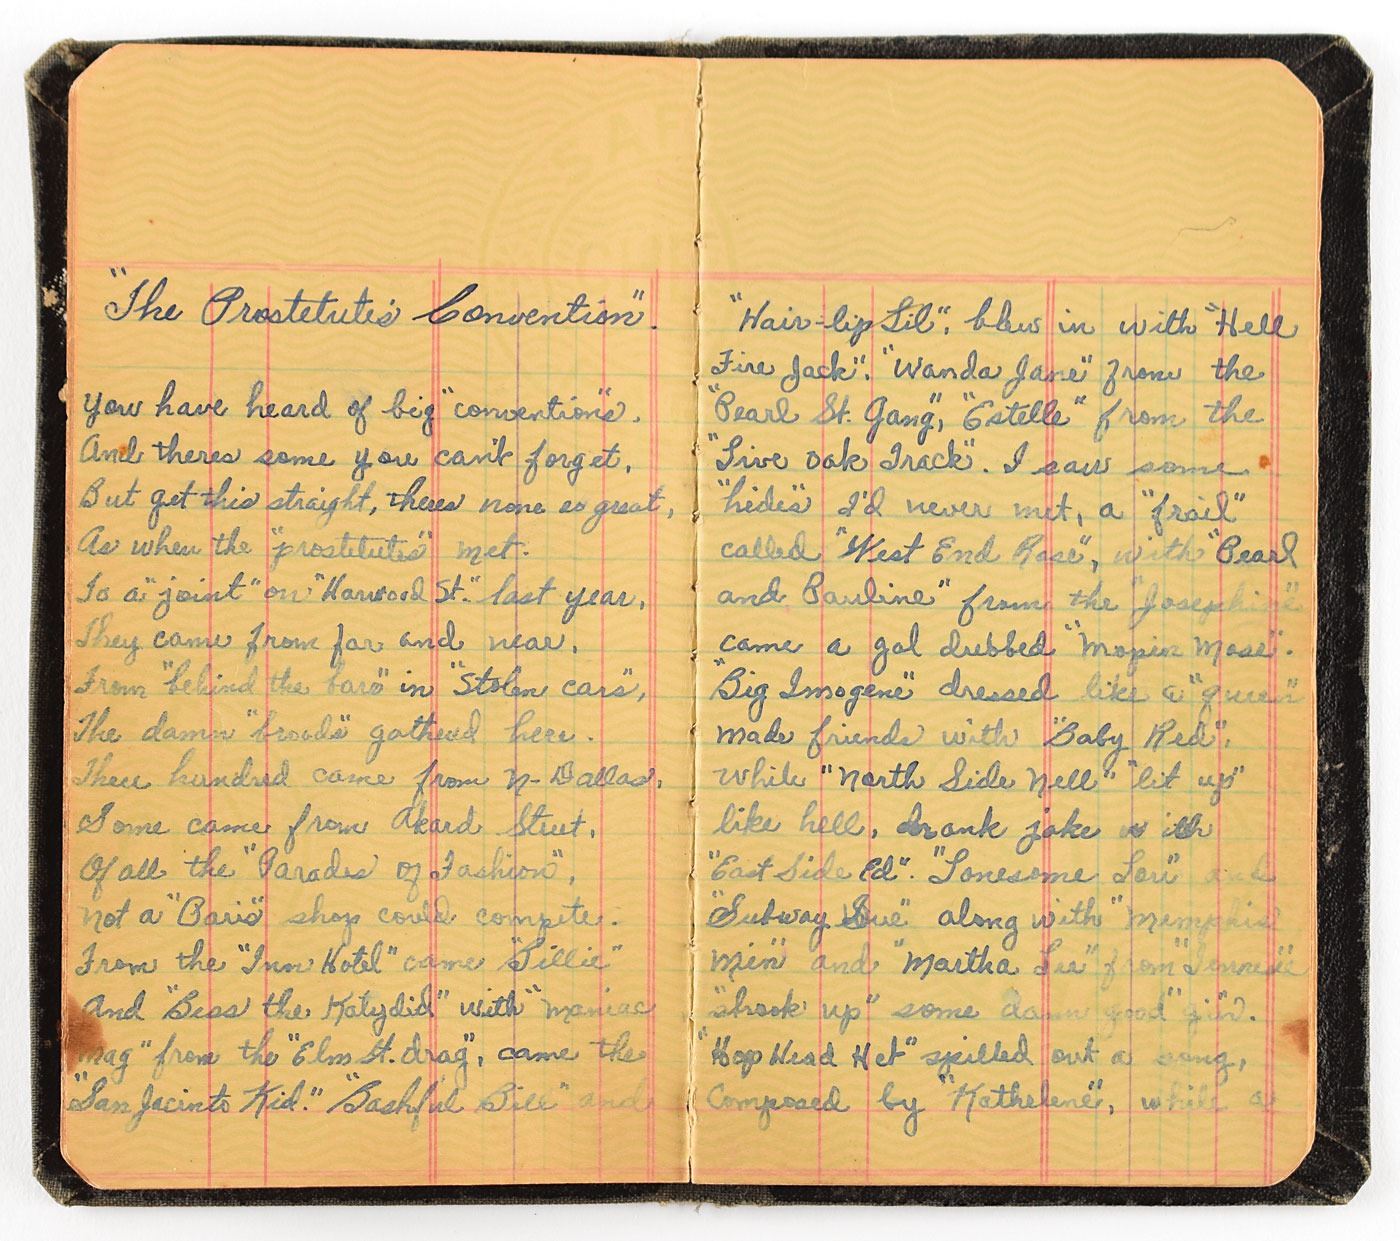 "The Prostetutes Convention".
You have heard of big "conventions".
And theres some you can't forget,
But get this straight, theres none so great,
As when the "prostetutes" met.
To a "joint" on "Harwood St." last year,
They came from far and near,
From "behind the bars" in "Stolen cars",
The damn "broads" gathered here.
Three hundred came from N-Dallas,
Some came from Akard Street,
Of all the "Parades of Fashion",
Not a "Paris" shop could compete.
From the "Inn Hotel" came "Tillie"
And "Bess the Katydid" with "maniac
mag" from the "Elm St. drag", came the
"San Jacinto Kid." "Bashful Bill" and
"Hair-lip Lil", blew in with "Hell
Fire Jack". "Wanda Jane" from the
"Pearl St. Gang", "Estelle" from the
"Live Oak Track". I saw some
"hides" I'd never met, a "frail"
called "West End Rose", with "Pearl
and Pauline" from the "Josephine"
came a gal dubbed "Mopin Mose".
"Big Imogene" dressed like a "queen"
made friends with "Baby Red",
While "North Side Nell" "lit up"
like hell, drank jake with
"East Side Ed". "Lonesome Lou" and
"Subway Sue" along with "Memphis
Min" and "Martha Lee" from "Tennessee
"shook up" some damn good "gin".
"Hop Head Het" spilled out a song,
Composed by "Kathelene", while a
SAFE